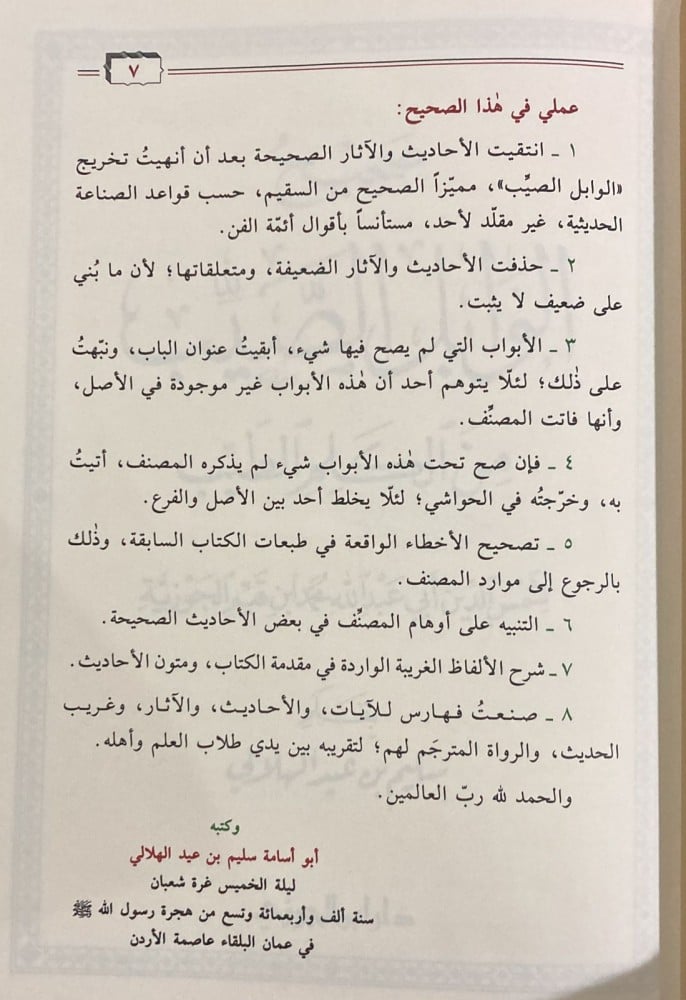 ٧
عملي في هٰذا الصحيح:
١ ـ انتقيت الأحاديث والآثار الصحيحة بعد أن أنهيتُ تخريج
«الوابل الصيِّب»، مميّزاً الصحيح من السقيم، حسب قواعد الصناعة
الحديثية، غير مقلّد لأحد، مستأنساً بأقوال أئمّة الفن.
٢ ـ حذفت الأحاديث والآثار الضعيفة، ومتعلقاتها؛ لأن ما بُني
على ضعيف لا يثبت.
٣ ـ الأبواب التي لم يصح فيها شيء، أبقيتُ عنوان الباب، ونبّهتُ
على ذٰلك؛ لئلّا يتوهم أحد أن هٰذه الأبواب غير موجودة في الأصل،
وأنها فاتت المصنِّف.
٤ ـ فإن صح تحت هٰذه الأبواب شيء لم يذكره المصنف، أتيتُ
به، وخرّجتُه في الحواشي؛ لئلّا يخلط أحد بين الأصل والفرع.
٥ ـ تصحيح الأخطاء الواقعة في طبعات الكتاب السابقة، وذٰلك
بالرجوع إلى موارد المصنف.
٦ ـ التنبيه على أوهام المصنِّف في بعض الأحاديث الصحيحة.
٧ ـ شرح الألفاظ الغريبة الواردة في مقدمة الكتاب، ومتون الأحاديث.
٨ ـ صنعتُ فهارس للآيات، والأحاديث، والآثار، وغريب
الحديث، والرواة المترجَم لهم؛ لتقريبه بين يدي طلاب العلم وأهله.
والحمد لله ربّ العالمين.
وكتبه
أبو أسامة سليم بن عيد الهلالي
ليلة الخميس غرة شعبان
سنة ألف وأربعمائة وتسع من هجرة رسول الله ﷺ
في عمان البلقاء عاصمة الأردن